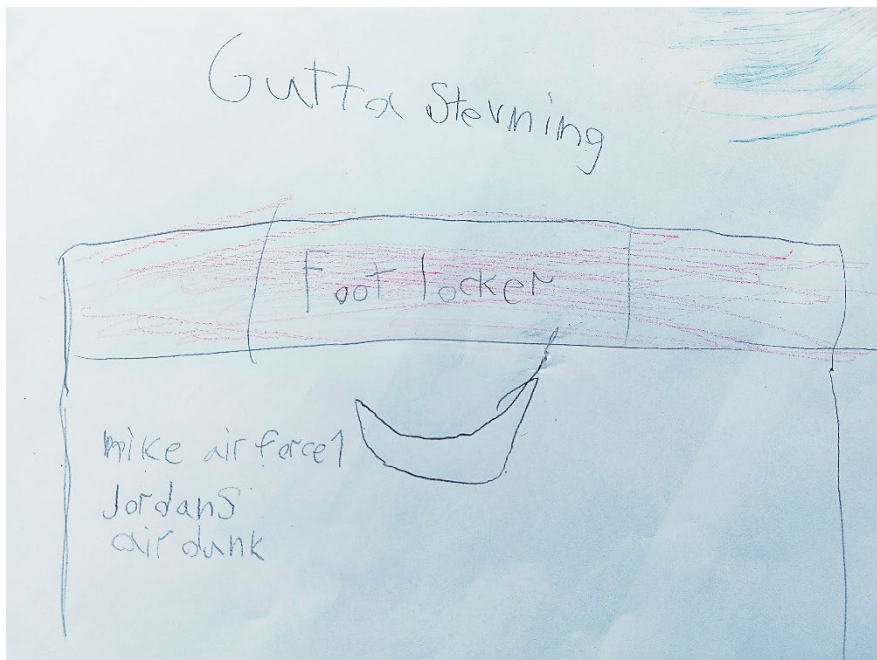 Gutta Sterning
Foot locker
nike air force 1
Jordans
air dunk